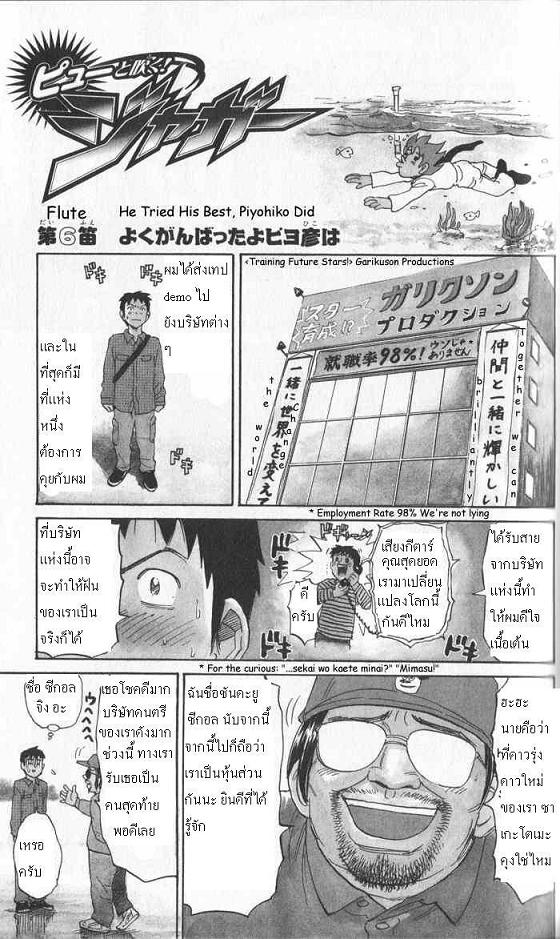 ピューと吹く!
ジャガー
Flute
He Tried His Best, Piyohiko Did
第6笛 よくがんばったよピヨ彦は
<Training Future Stars!> Garikuson Productions
スター育成!?
ガリクソン
プロダクション
就職率98%!
ウソじゃありません
一緒に世界を変えて
the world
Change
仲間と一緒に輝かしい
Together we can
brilliantly
* Employment Rate 98% We're not lying
ドキ
ドキ
ドキ
ผมได้ส่งเทป
demo ไป
ยังบริษัทต่าง
ๆ
และใน
ที่สุดก็มี
ที่แห่ง
หนึ่ง
ต้องการ
คุยกับผม
ได้รับสาย
จากบริษัท
แห่งนี้ทำ
ให้ผมดีใจ
เนื้อเต้น
เสียงกีตาร์
คุณสุดยอด
เรามาเปลี่ยน
แปลงโลกนี้
กันดีไหม
ดี
ครับ
ドキ
ドキ
ที่บริษัท
แห่งนี้อาจ
จะทำให้ฝัน
ของเราเป็น
จริงก็ได้
* For the curious: "...sekai wo kaete minai?" "Mimasu!"
ฮะฮะ
นายคือว่า
ที่ดาวรุ่ง
ดาวใหม่
ของเรา ซา
เกะโตเมะ
คุงใช่ไหม
ฉันชื่อซันดะยู
ซีกอล นับจากนี้
จากนี้ไปก็ถือว่า
เราเป็นหุ้นส่วน
กันนะ ยินดีที่ได้
รู้จัก
เธอโชคดีมาก
บริษัทดนตรี
ของเราดังมาก
ช่วงนี้ ทางเรา
รับเธอเป็น
คนสุดท้าย
พอดีเลย
ウヘヘヘ
ชื่อ ซีกอล
จิง อะ
เหรอ
ครับ